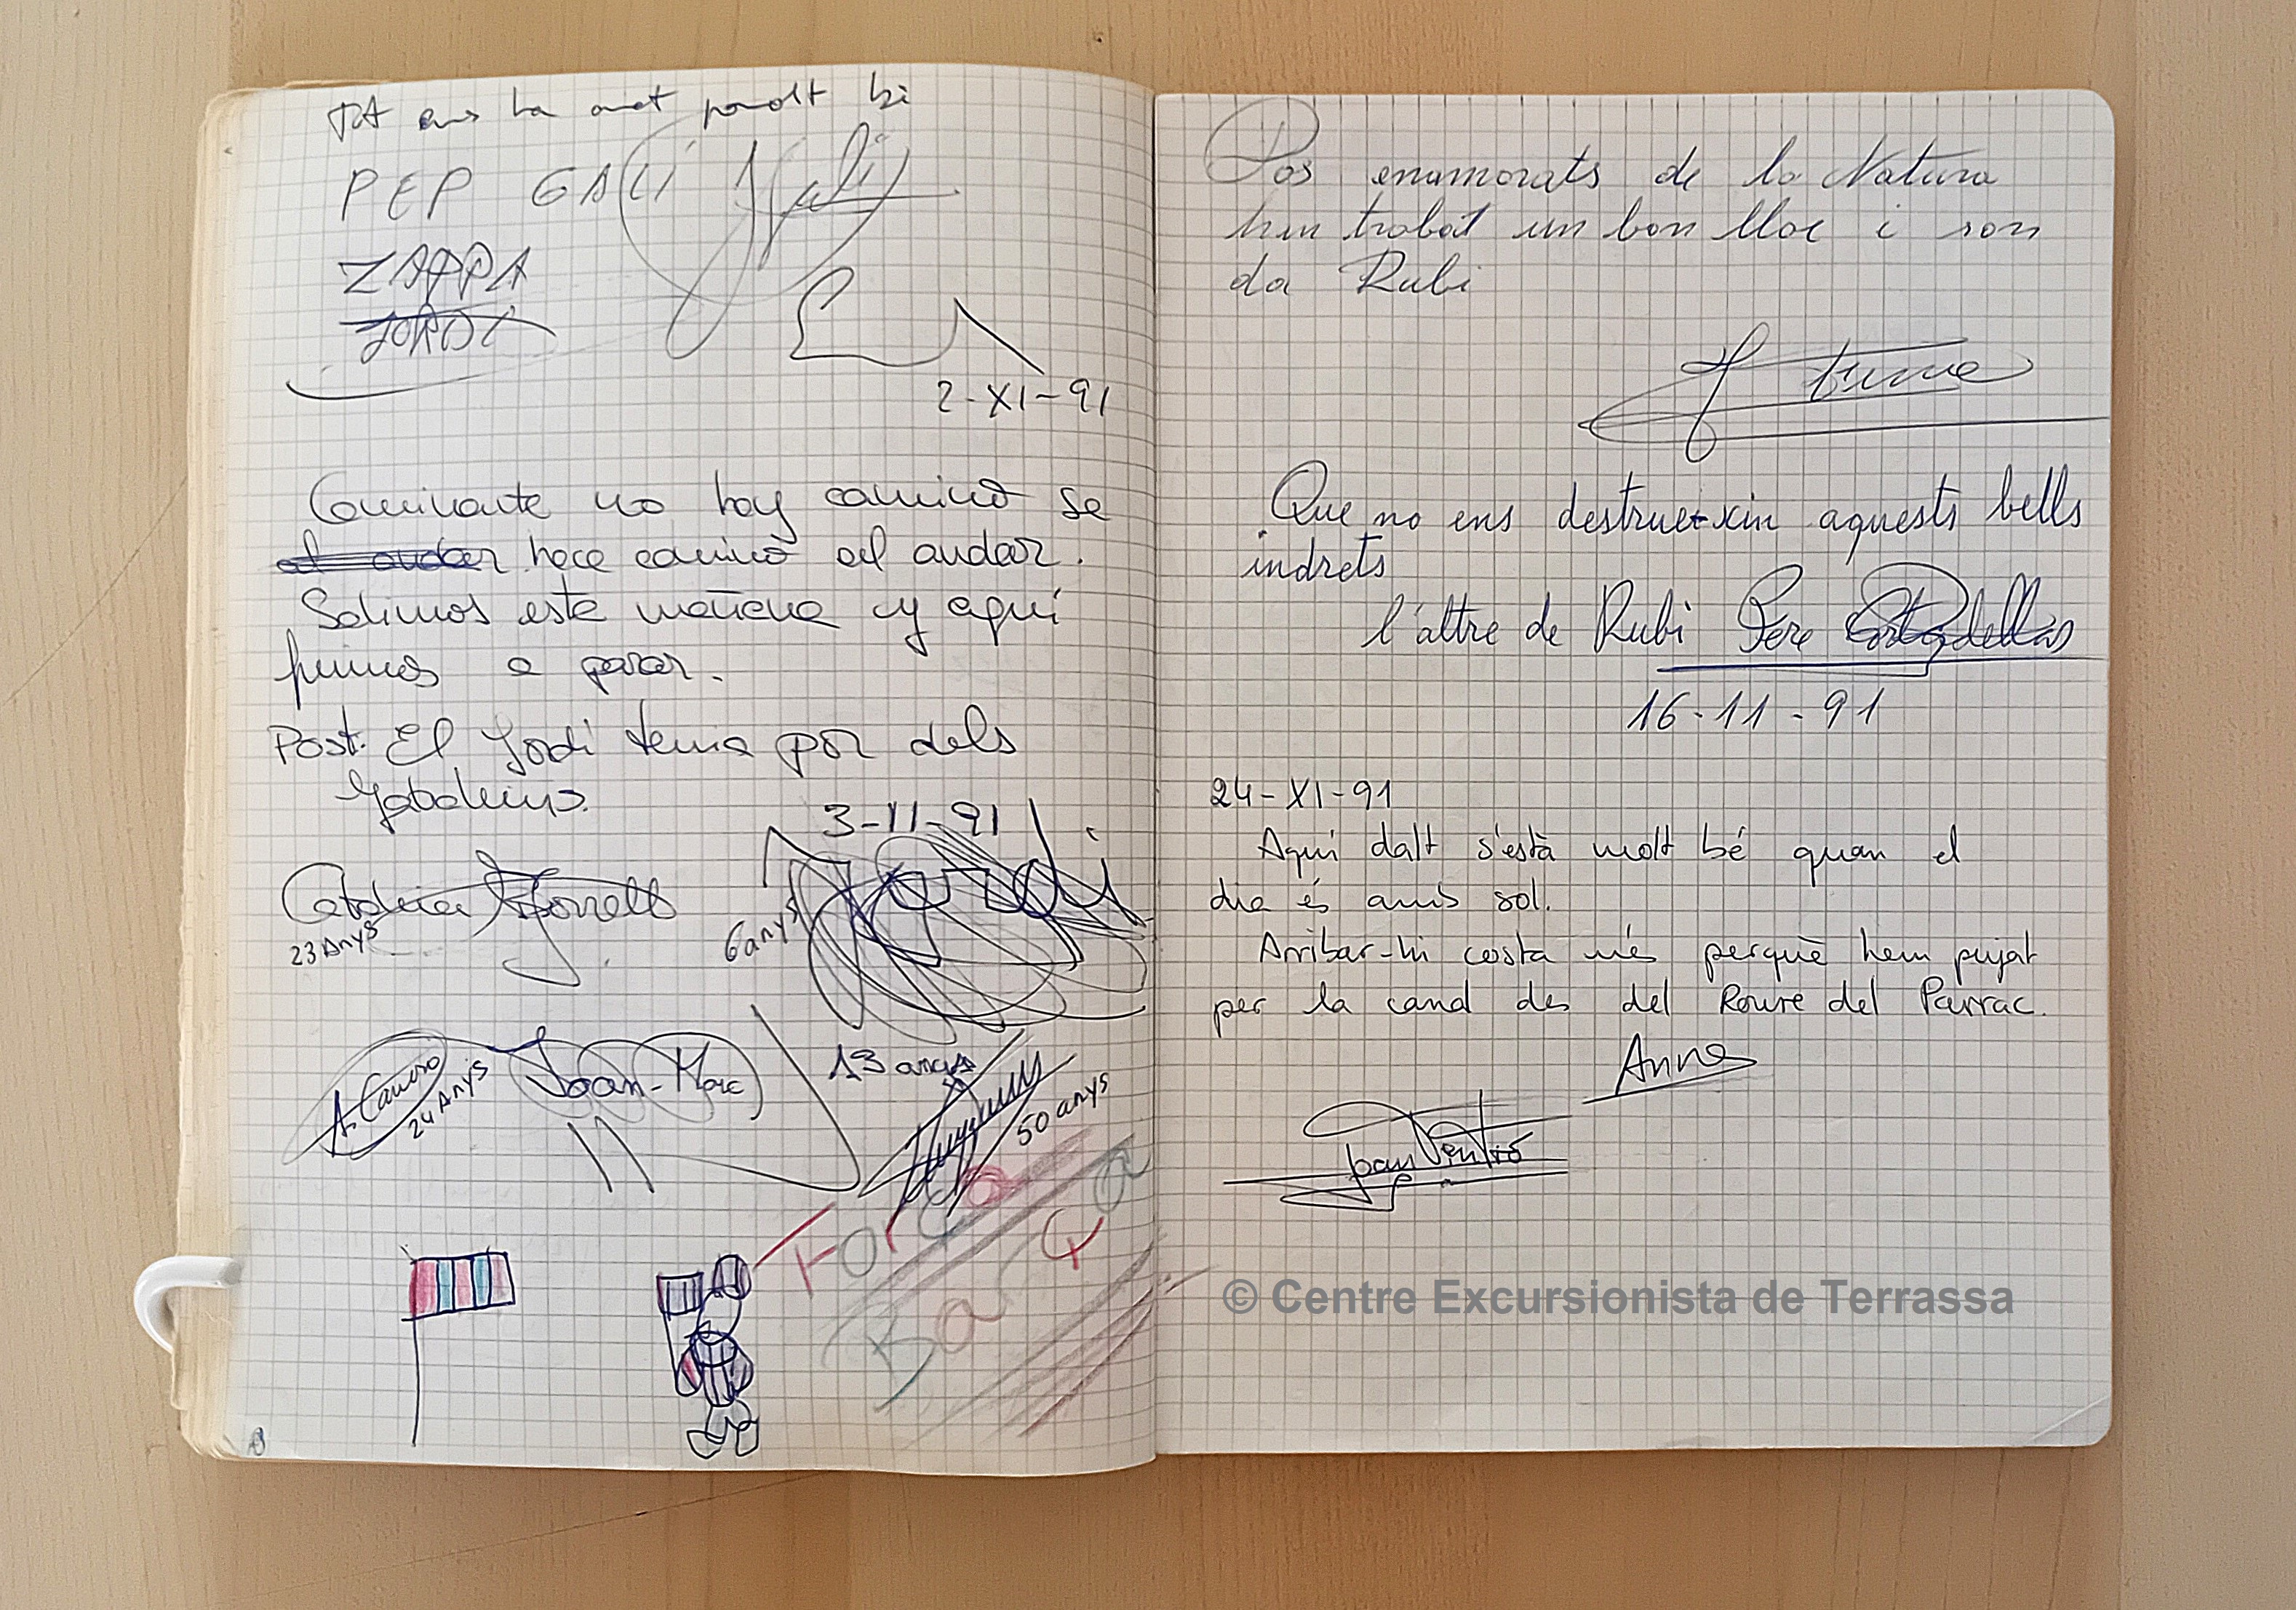 Tot ens ha anat molt bé
PEP GALÍ
ZAPPA
JORDI
2-XI-91
Caminante no hay camino se
al andar hace camino al andar.
Salimos esta mañana y aquí
fuimos a parar.
Post. El Jordi tenia por dels
3-11-91
Jordi
6 anys
Catalina
23 Anys
24 Anys
Joan-Marc
13 anys
50 anys
Força
Barça
Dos enamorats de la Natura
han trobat un bon lloc i son
da Rubi
Que no ens destrueixin aquests bells
indrets
l'altre de Rubi Pere
16-11-91
24-XI-91
Aquí dalt s'està molt bé quan el
dia és amb sol.
Arribar-hi costa més perquè hem pujat
per la canal des del Roure del Parrac.
Anna
Joan
© Centre Excursionista de Terrassa